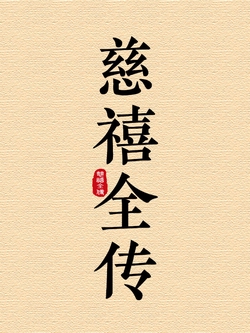 慈禧全传